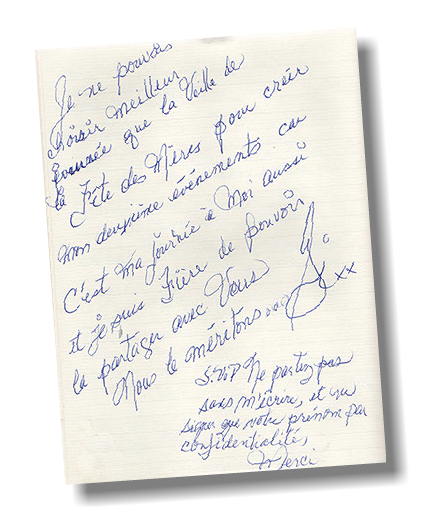 Je ne pouvais
choisir meilleur
journée que la Veille de
la Fête des Mères pour créer
mon deuxième événements car
C'est ma journée à Moi aussi
et je suis Fière de pouvoir
la partager avec Vous
Nous le méritons...
xx
S.V.P Ne partez pas
sans m'écrire, et ne
signer que votre prénom par
confidentialité,
Merci